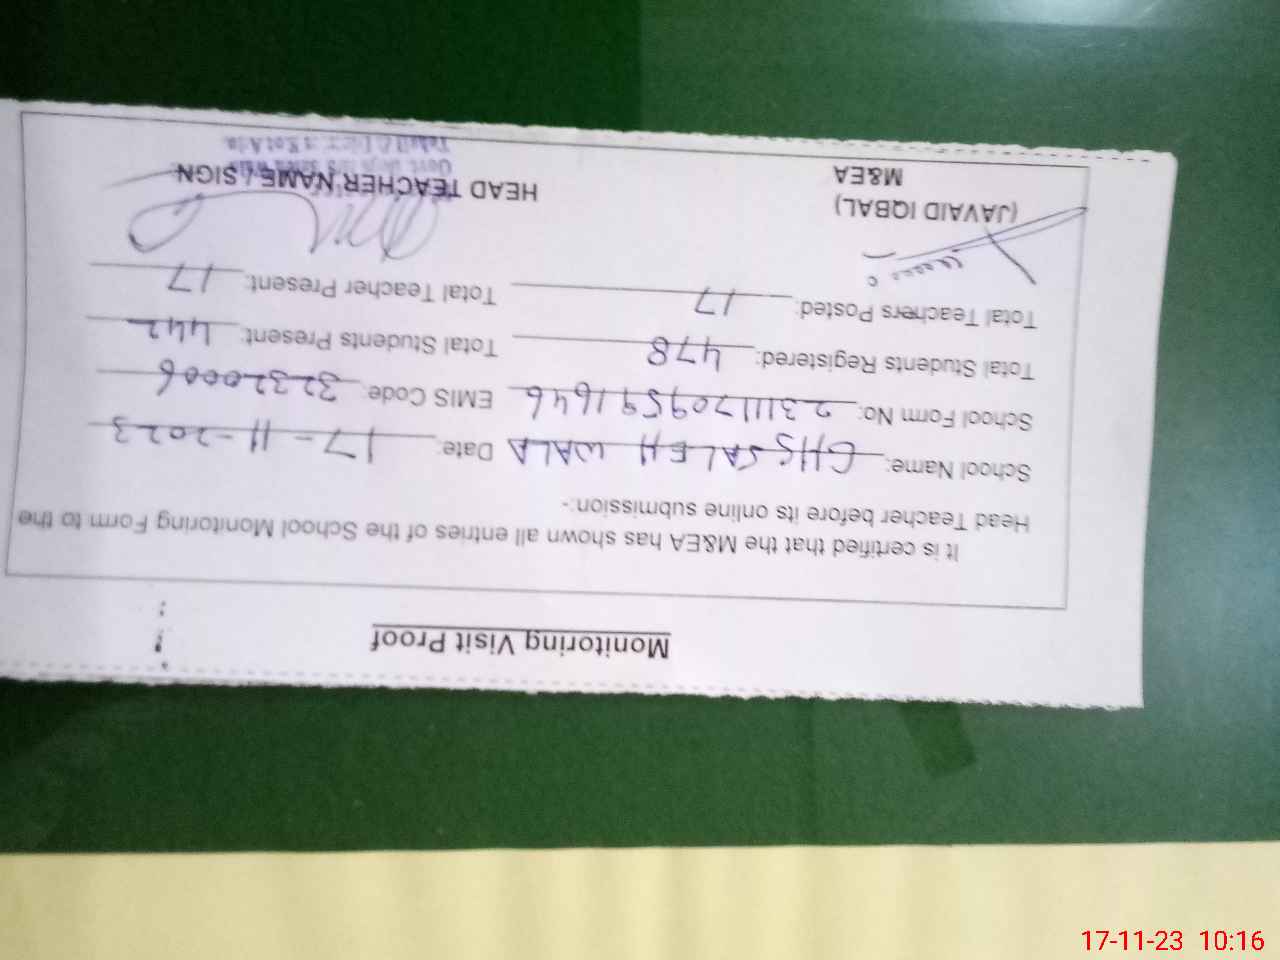 Monitoring Visit Proof
It is certified that the M&EA has shown all entries of the School Monitoring Form to the
Head Teacher before its online submission:-
School Name: GHS SALEH WALA Date: 17-11-2023
School Form No: 2311170959 1646 EMIS Code: 32320006
Total Students Registered: 478 Total Students Present: 442
Total Teachers Posted: 17 Total Teacher Present: 17
(JAVAID IQBAL)
M&EA
HEAD TEACHER NAME / SIGN
17-11-23 10:16